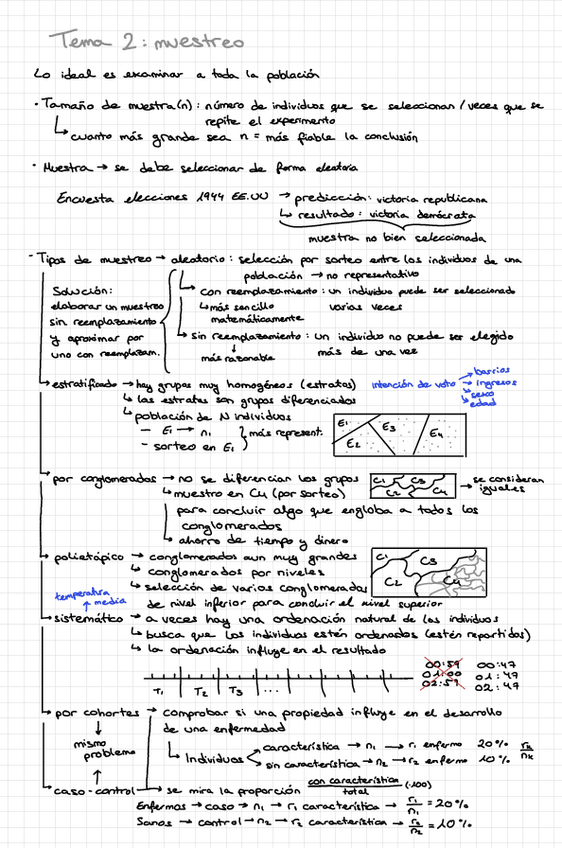 Tema 2: muestreo
Lo ideal es examinar a toda la población
· Tamaño de muestra(n): número de individuos que se seleccionan / veces que se
repite el experimento
↳ cuanto más grande sea n = más fiable la conclusión
· Muestra → se debe seleccionar de forma aleatoria
Encuesta elecciones 1944 EE.UU → predicción: victoria republicana
↳ resultado: victoria demócrata
muestra no bien seleccionada
· Tipos de muestreo → aleatorio: selección por sorteo entre los individuos de una
población → no representativo
Solución:
elaborar un muestreo
sin reemplazamiento
y aproximar por
uno con reemplazam.
↳ con reemplazamiento: un individuo puede ser seleccionado
varias veces
↳ más sencillo
matemáticamente
↳ sin reemplazamiento: un individuo no puede ser elegido
más de una vez
↓
más razonable
↳ estratificado → hay grupos muy homogéneos (estratos)
intención de voto → barrios
→ ingresos
→ sexo
→ edad
↳ los estratos son grupos diferenciados
↳ población de N individuos
– E₁ → n₁
– sorteo en E₁
} más represent.
E₁ E₂ E₃ E₄
↳ por conglomerados → no se diferencian los grupos
C₁ C₂ C₃ C₄ → se consideran
iguales
↳ muestreo en C₄ (por sorteo)
para concluir algo que engloba a todos los
conglomerados
↳ ahorro de tiempo y dinero
↳ polietápico → conglomerados aun muy grandes
↳ conglomerados por niveles
↳ selección de varias conglomerados
de nivel inferior para concluir el nivel superior
C₁ C₂ C₃ C₄
temperatura
↗ media
↳ sistemático → a veces hay una ordenación natural de los individuos
↳ busca que los individuos estén ordenados (estén repartidos)
↳ la ordenación influye en el resultado
T₁ T₂ T₃ ...
00:59 00:47
01:00 01:47
02:59 02:47
↳ por cohortes → comprobar si una propiedad influye en el desarrollo
de una enfermedad
↓
mismo
problema
↑
↳ Individuos < característica → n₁ → r₁ enfermo 20%
sin característica → n₂ → r₂ enfermo 10%
↳ caso-control → se mira la proporción con característica / total (·100)
Enfermos → caso → n₁ → r₁ característica → r₁/n₁ = 20%
Sanos → control → n₂ → r₂ característica → r₂/n₂ = 10%